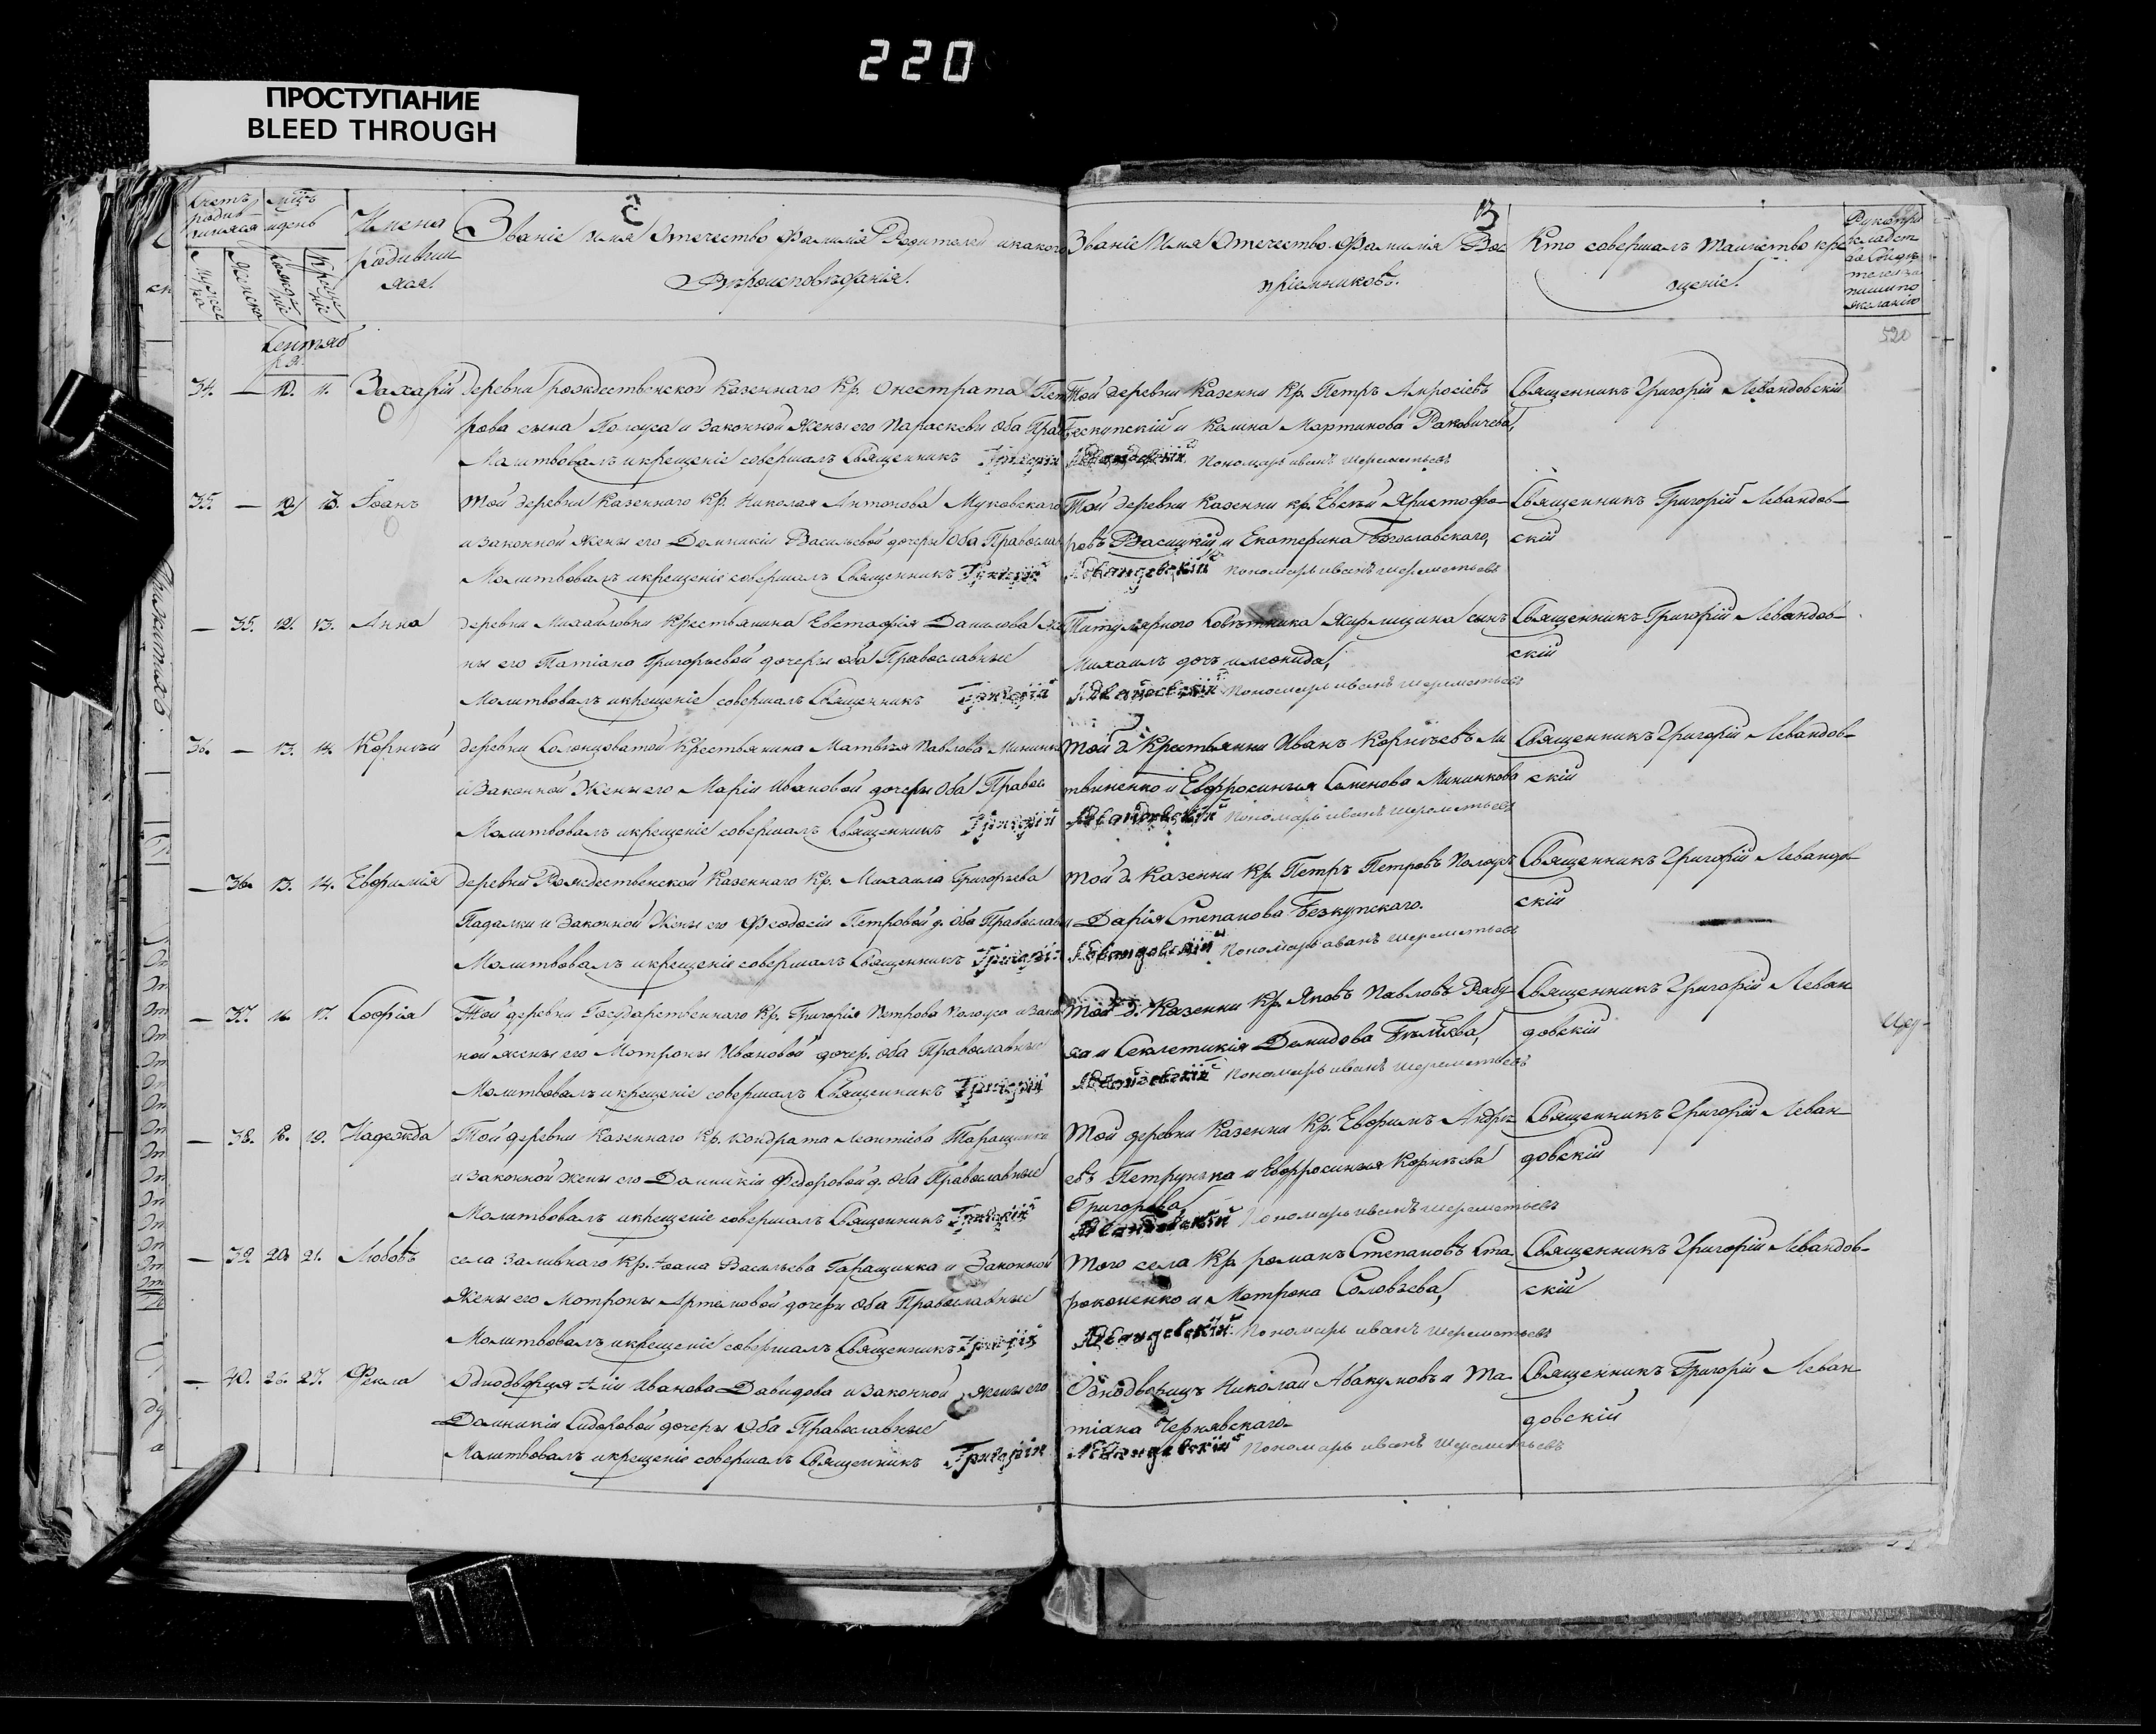 220
ПРОСТУПАНИЕ
BLEED THROUGH
Счетъ родив- шихся
Мц̃ъ и день
Имена родивши хся.
Званіе Имя Отечество Фамилія Родителей и какого
Вѣроисповѣданія.
Званіе Имя Отечество Фамилія Вос
пріемниковъ.
Кто совершалъ таинство кре
щеніе.
Рукопри
кладст
во свидѣ
телей за
писи по
желанію
Мужес ка
Женска
Рожде ніе
Креще ніе
Сентяб
ря.
520
34. — 10. 11. Захарій деревни Рождественской Казеннаго Кр. Онестрата Пет
рова сына Голоуса и Законной Жены его Параскеви Оба Прав
Молитвовалъ и крещеніе совершалъ Священникъ Григорій
Той деревни Казенни Кр. Петръ Амросіевъ
Бескупскій и Калина Мартинова Раковичева,
Левандовскій Пономарь иванъ шереметьевъ
Священникъ Григорій Левандовскій
35. — 12. 13. Іоанъ Той деревни Казеннаго Кр. Николая Антонова Муковскаго
и законной жены его Домникіи Васильевой дочери Оба Православ
Молитвовалъ и крещеніе совершалъ Священникъ Григорій
Той деревни Казенни кр. Евсѣй Христофо-
ровъ Васицкій и Екатерина Богославскаго,
Левандовскій Пономарь иванъ шереметьевъ
Священникъ Григорій Левандов-
скій
— 35. 12. 13. Анна деревни Михайловки Крестьянина Евстафія Данилова Же
ны его Татіано Григорьевой дочери оба Православные
Молитвовалъ и крещеніе совершалъ Священникъ Григорій
Титулярного Совѣтника сынъ
Михаилъ дочь илеонида,
Левандовскій Пономарь иванъ шереметьевъ
Священникъ Григорій Левандов-
скій
36. — 13. 14. Корнѣй деревни Солонцоватой Крестьянина Матвѣя Павлова Мининки
и Законной Жены его Маріи Ивановой дочери Оба Правос
Молитвовалъ и крещеніе совершалъ Священникъ Григорій
Той д. Крестьянни Иванъ Корнѣевъ Ли
твиненко и Евфросинѣя Семенова Мининкова
Левандовскій Пономарь иванъ шереметьевъ
Священникъ Григорій Левандов-
скій
— 36. 13. 14. Евфимія деревни Рождественской Казеннаго Кр. Михаила Григорьева
Падалки и Законной Жены его Феодосіи Петровой д. Оба Православн
Молитвовалъ и крещеніе совершалъ Священникъ Григорій
Той д. Казенни Кр. Петръ Петровъ Полоусъ
и Дарія Степанова Безкупскаго.
Левандовскій Пономарь иванъ шереметьевъ
Священникъ Григорій Левандов-
скій
— 37. 16. 17. Софія Той деревни Государственнаго Кр. Григорія Петрова Полоуса и Закон
ной жены его Мотроны Ивановой дочер. оба Православные
Молитвовалъ и крещеніе совершалъ Священникъ Григорій
Той д. Казенни Кр. Яковъ Павловъ Рабу-
ха и Секлетикія Демидова Бѣляева,
Левандовскій Пономарь иванъ шереметьевъ
Священникъ Григорій Леван
довскій
— 38. 18. 19. Надежда Той деревни Казеннаго Кр. Кондрата Леонтіева Таращинки
и законной жены его Домникіи Федоровой д. Оба Православные
Молитвовалъ и крещеніе совершалъ Священникъ Григорій
Той деревни Казенни Кр. Евфимъ Андре-
евъ Петрунька и Евфросинѣя Корнѣева
Григорева,
Левандовскій Пономарь иванъ шереметьевъ
Священникъ Григорій Леван
довскій
— 39. 20. 21. Любовъ села Заливнаго Кр. Іоана Васильева Гаращинка и Законной
Жены его Мотроны Артемовой дочери Оба Православные
Молитвовалъ и крещеніе совершалъ Священникъ Григорій
Того села Кр. романъ Степановъ Ста-
рокоженко и Мотрона Соловьева,
Левандовскій Пономарь иванъ шереметьевъ
Священникъ Григорій Левандов-
скій
— 40. 26. 27. Фекла Однодворца Иліи Иванова Давидова и законной жены его
Домникіи Сидоровой дочери Оба Православные
Молитвовалъ и крещеніе совершалъ Священникъ Григорій
Однодворицъ Николай Авакумовъ и Та-
тіана Чернявскаго-
Левандовскій Пономарь иванъ шереметьевъ
Священникъ Григорій Леван
довскій